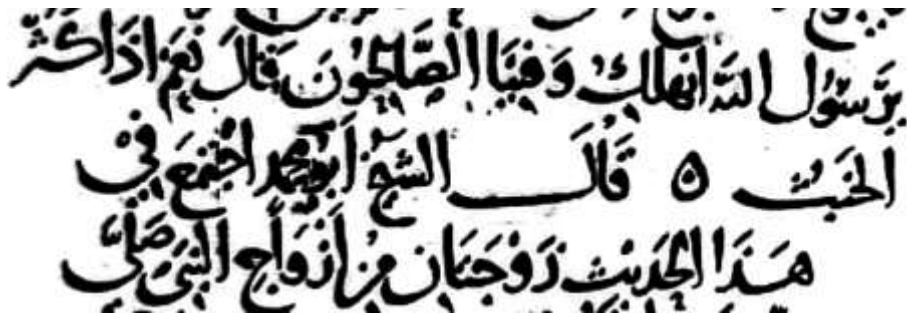 يَرَسُول اللَّه انهلك وَفِينَا الصَّالِحُونَ قَالَ نَعَم اذَا كَثُرَ
الخَبَث ٥ قَالَ الشيخ أَبو محمد اجْتَمَعَ فِي
هَذَا الحَدِيث زَوْجَتَان مِن أَزْوَاجِ النَّبِي صَلَّى